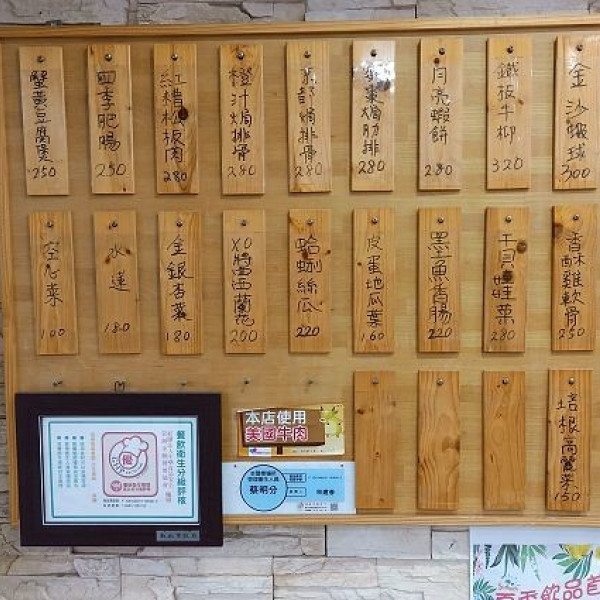 蟹黃豆腐煲
250
四季肥腸
250
紅糟松板肉
280
橙汁焗排骨
280
京都焗排骨
280
焗肋排
280
月亮蝦餅
280
鐵板牛柳
320
金沙蝦球
300
空心菜
100
水蓮
180
金銀杏菜
180
XO醬西蘭花
200
蛤蜊絲瓜
220
皮蛋地瓜葉
160
墨魚香腸
220
干貝娃菜
280
香酥雞軟骨
250
培根高麗菜
150
餐飲衛生分級評核
優
本店使用
美國牛肉
蔡明分
夏季飲品首